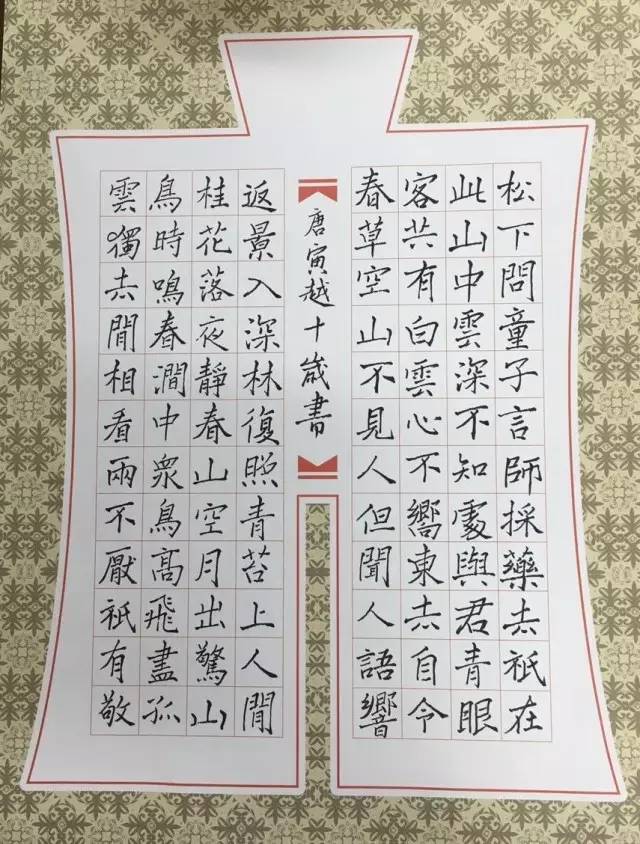 松下問童子言師採藥去祇在
此山中雲深不知處與君青眼
客共有白雲心不嚮東去自令
春草空山不見人但聞人語響
唐寅越十歲書
返景入深林復照青苔上人閒
桂花落夜靜春山空月出驚山
鳥時鳴春澗中衆鳥高飛盡孤
雲獨去閒相看兩不厭祇有敬